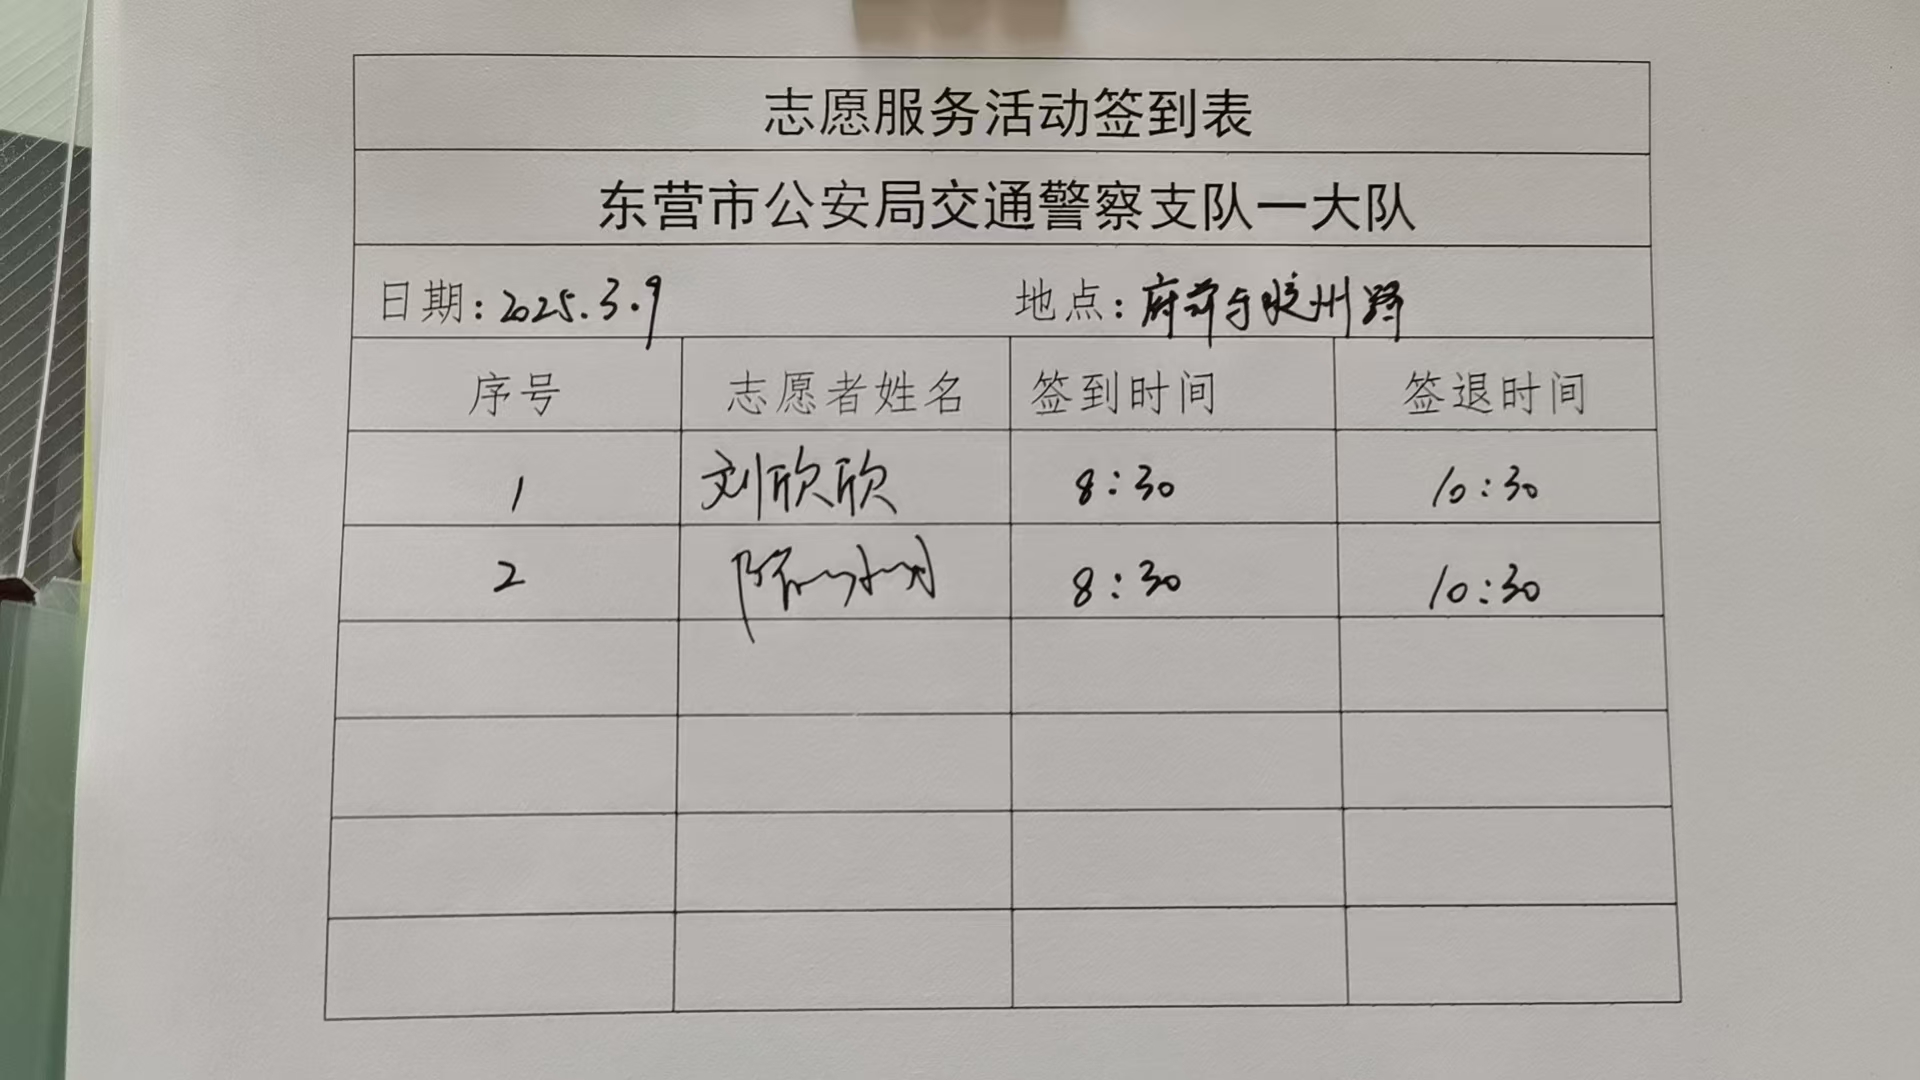 志愿服务活动签到表
东营市公安局交通警察支队一大队
日期：2025.3.9 地点：府前与胶州路
序号 志愿者姓名 签到时间 签退时间
1 刘欣欣 8:30 10:30
2 8:30 10:30